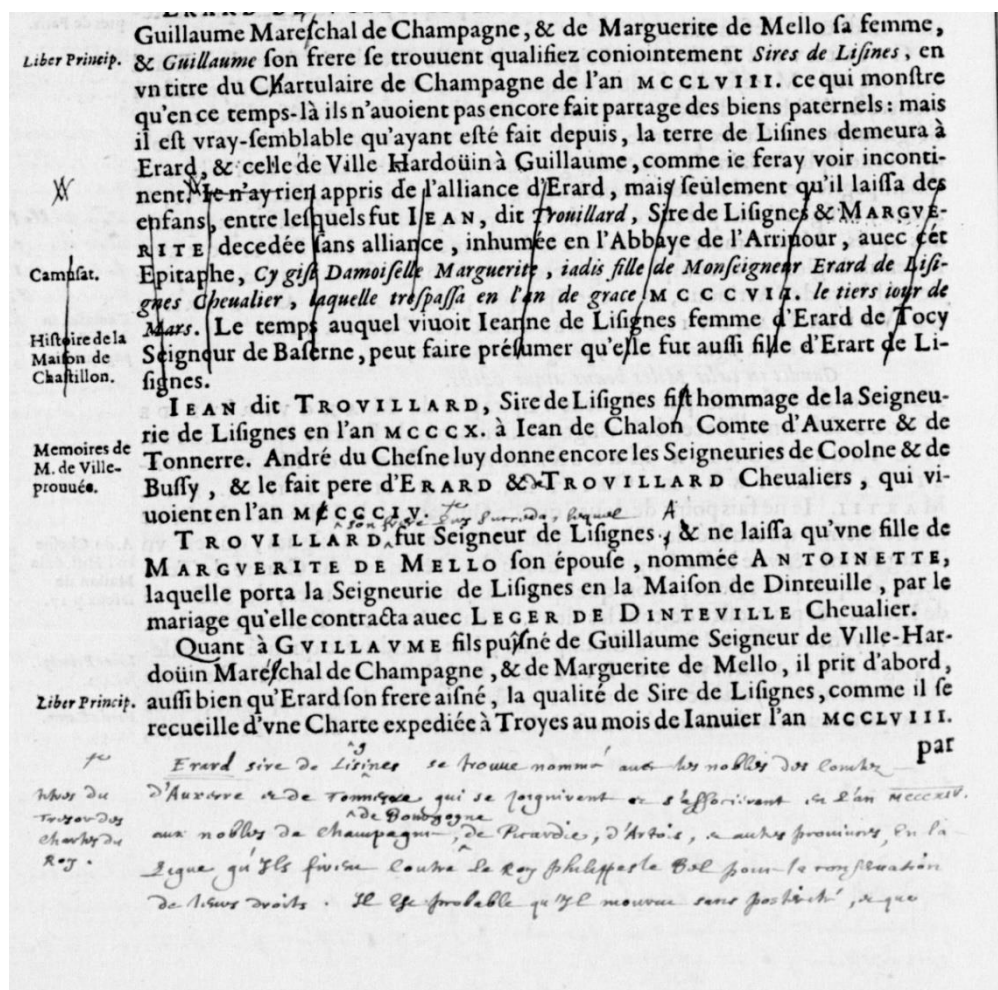 Guillaume Mareschal de Champagne, & de Marguerite de Mello sa femme,
Liber Princip.
& Guillaume son frere se trouuent qualifiez coniointement Sires de Lisines, en
vn titre du Chartulaire de Champagne de l'an MCCLVIII. ce qui monstre
qu'en ce temps-là ils n'auoient pas encore fait partage des biens paternels : mais
il est vray-semblable qu'ayant esté fait depuis, la terre de Lisines demeura à
Erard, & celle de Ville Hardoüin à Guillaume, comme ie feray voir inconti-
nent. Ie n'ay rien appris de l'alliance d'Erard, mais seulement qu'il laissa des
enfans, entre lesquels fut IEAN, dit Trouillard, Sire de Lisignes & MARGVE-
RITE decedée sans alliance, inhumée en l'Abbaye de l'Arriuour, auec cét
Campsat.
Epitaphe, Cy gist Damoiselle Marguerite, iadis fille de Monseigneur Erard de Lisi-
gnes Cheualier, laquelle trespassa en l'an de grace MCCCVII. le tiers iour de
Mars. Le temps auquel viuoit Ieanne de Lisignes femme d'Erard de Tocy
Histoire de la
Maison de
Chastillon.
Seigneur de Baserne, peut faire présumer qu'elle fut aussi fille d'Erart de Li-
signes.
IEAN dit TROVILLARD, Sire de Lisignes fist hommage de la Seigneu-
rie de Lisignes en l'an MCCCX. à Iean de Chalon Comte d'Auxerre & de
Memoires de
M. de Ville-
prouuée.
Tonnerre. André du Chesne luy donne encore les Seigneuries de Coolne & de
Bussy, & le fait pere d'ERARD & TROVILLARD Cheualiers, qui vi-
uoient en l'an MCCCCIV.
son frere luy succeda, lequel
TROVILLARD fut Seigneur de Lisignes, & ne laissa qu'vne fille de
MARGVERITE DE MELLO son épouse, nommée ANTOINETTE,
laquelle porta la Seigneurie de Lisignes en la Maison de Dinteuille, par le
mariage qu'elle contracta auec LEGER DE DINTEVILLE Cheualier.
Quant à GVILLAVME fils puisné de Guillaume Seigneur de Ville-Har-
doüin Mareschal de Champagne, & de Marguerite de Mello, il prit d'abord,
Liber Princip.
aussi bien qu'Erard son frere aisné, la qualité de Sire de Lisignes, comme il se
recueille d'vne Charte expediée à Troyes au mois de Ianuier l'an MCCLVIII.
par
Erard sire de Lisignes se trouue nommé auec les nobles des comtez
titres du
Tresor des
Chartes du
Roy.
d'Auxerre et de Tonnerre, qui se joignirent et s'associerent en l'an MCCCXIV.
aux nobles de Champagne, de Bourgogne, de Picardie, d'Artois, & autres prouinces, en la
Ligue qu'Ils firent contre Le Roy philippes le Bel pour la conseruation
de leurs droits. Il est probable qu'Il mourut sans posterité, & que